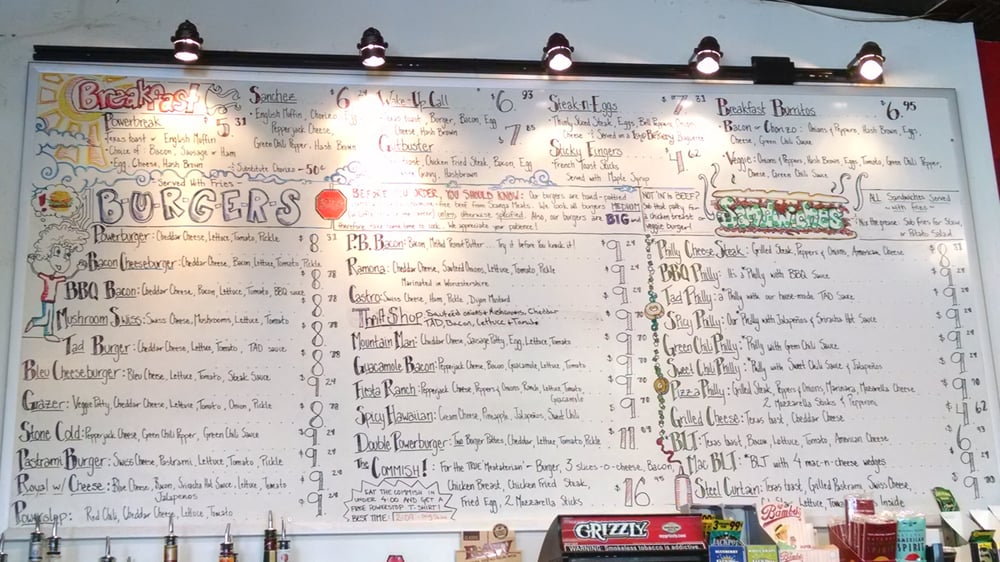 Breakfast
Powerbreak $5.31
Texas toast or English Muffin
Choice of Bacon, Sausage or Ham
Egg, Cheese, Hash Brown
Served with Fries
Sanchez $6.
English Muffin, Chorizo, Egg
Pepperjack Cheese,
Green Chili Pepper, Hash Brown
Substitute Chorizo - 50¢
Wake-Up Call $6.93
Toast, Burger, Bacon, Egg
Cheese, Hash Brown
Gutbuster $7.85
Toast, Chicken Fried Steak, Bacon, Egg
Gravy, Hashbrown
Steak-n-Eggs $7.31
Thinly Sliced Steak, Eggs, Bell Peppers, Onion,
Cheese Served in a Baguette
Sticky Fingers $4.62
French Toast Sticks
Served with Maple Syrup
Breakfast Burritos $6.95
Bacon or Chorizo: Onions & Peppers, Hash Brown, Eggs,
Cheese, Green Chili Sauce
Veggie: Onions & Peppers, Hash Brown, Eggs, Tomato, Green Chili Pepper,
Cheese, Green Chili Sauce
B-U-R-G-E-R-S
BEFORE YOU ORDER YOU SHOULD KNOW: Our burgers are hand-pattied
beef from Oswego Meats. We cook all burgers MEDIUM
unless otherwise specified. Also, our burgers are BIG and
therefore take some time to cook. We appreciate your patience!
NOT INTO BEEF?
Sub that patty for
a chicken breast or
veggie burger!
Sandwiches
ALL Sandwiches Served
with Fries
Nix the grease. Sub fries for Slaw,
or Potato Salad
Powerburger: Cheddar Cheese, Lettuce, Tomato, Pickle $8
Bacon Cheeseburger: Cheddar Cheese, Bacon, Lettuce, Tomato, Pickle $8.78
BBQ Bacon: Cheddar Cheese, Bacon, Lettuce, Tomato, BBQ sauce $8.78
Mushroom Swiss: Swiss Cheese, Mushrooms, Lettuce, Tomato $8.78
Tad Burger: Cheddar Cheese, Lettuce, Tomato, TAD sauce $8.78
Bleu Cheeseburger: Bleu Cheese, Lettuce, Tomato, Steak Sauce $9.24
Grazer: Veggie Patty, Cheddar Cheese, Lettuce, Tomato, Onion, Pickle $8.78
Stone Cold: Pepperjack Cheese, Green Chili Pepper, Green Chili Sauce $9.24
Pastrami Burger: Swiss Cheese, Pastrami, Lettuce, Tomato, Pickle $9
Royal w/ Cheese: Bleu Cheese, Bacon, Sriracha Hot Sauce, Lettuce, Tomato $9
Jalapenos
Powerslop: Red Chili, Cheddar Cheese, Lettuce, Tomato $9
P.B. Bacon: Bacon, Melted Peanut Butter... Try it before you knock it! $9.24
Ramona: Cheddar Cheese, Sautéed Onions, Lettuce, Tomato, Pickle $9.24
Marinated in Worcestershire
Castro: Swiss Cheese, Ham, Pickle, Dijon Mustard $9.24
Thrift Shop: Sautéed onions & mushrooms, Cheddar
TAD, Bacon, Lettuce & Tomato
Mountain Man: Cheddar Cheese, Sausage Patty, Egg, Lettuce, Tomato $9.70
Guacamole Bacon: Pepperjack Cheese, Bacon, Guacamole, Lettuce, Tomato $9.70
Fiesta Ranch: Pepperjack Cheese, Peppers & Onions, Ranch, Lettuce, Tomato $9.70
Guacamole
Spicy Hawaiian: Cream Cheese, Pineapple, Jalapeños, Sweet Chili $9.24
Double Powerburger: Two Burger Patties, Cheddar, Lettuce, Tomato, Pickle $11
The COMMISH!: For the TRUE Meatatarian - Burger, 3 slices-o-cheese, Bacon,
Chicken Breast, Chicken Fried Steak, $16.95
Fried Egg, 2 Mozzarella Sticks
EAT THE COMMISH IN
UNDER 4:00 AND GET A
FREE POWERSTOP T-SHIRT!
BEST TIME:
Philly Cheese Steak: Grilled Steak, Peppers & Onions, American Cheese $8.31
BBQ Philly: It's a Philly with BBQ sauce $9.24
Tad Philly: a Philly with our house-made TAD Sauce $9.24
Spicy Philly: Our Philly with Jalapeños & Sriracha Hot Sauce $9.24
Green Chili Philly: Philly with Green Chili Sauce $9.24
Sweet Chili Philly: Philly with Sweet Chili Sauce & Jalapeños $9
Pizza Philly: Grilled Steak, Peppers & Onions, Marinara, Mozzarella Cheese $9.70
2 Mozzarella Sticks & Pepperoni
Grilled Cheese: Texas toast, Cheddar Cheese $4.62
BLT: Texas toast, Bacon, Lettuce, Tomato, American Cheese $6.93
Mac BLT: "BLT with 4 mac-n-cheese wedges $9
Steel Curtain: Texas toast, Grilled Pastrami, Swiss Cheese, $9
Lettuce, Tomato, Inside
GRIZZLY
WARNING: Smokeless tobacco is addictive.
JACKPOT
3 FOR 99¢
Bambú
AMERICAN
SPIRIT